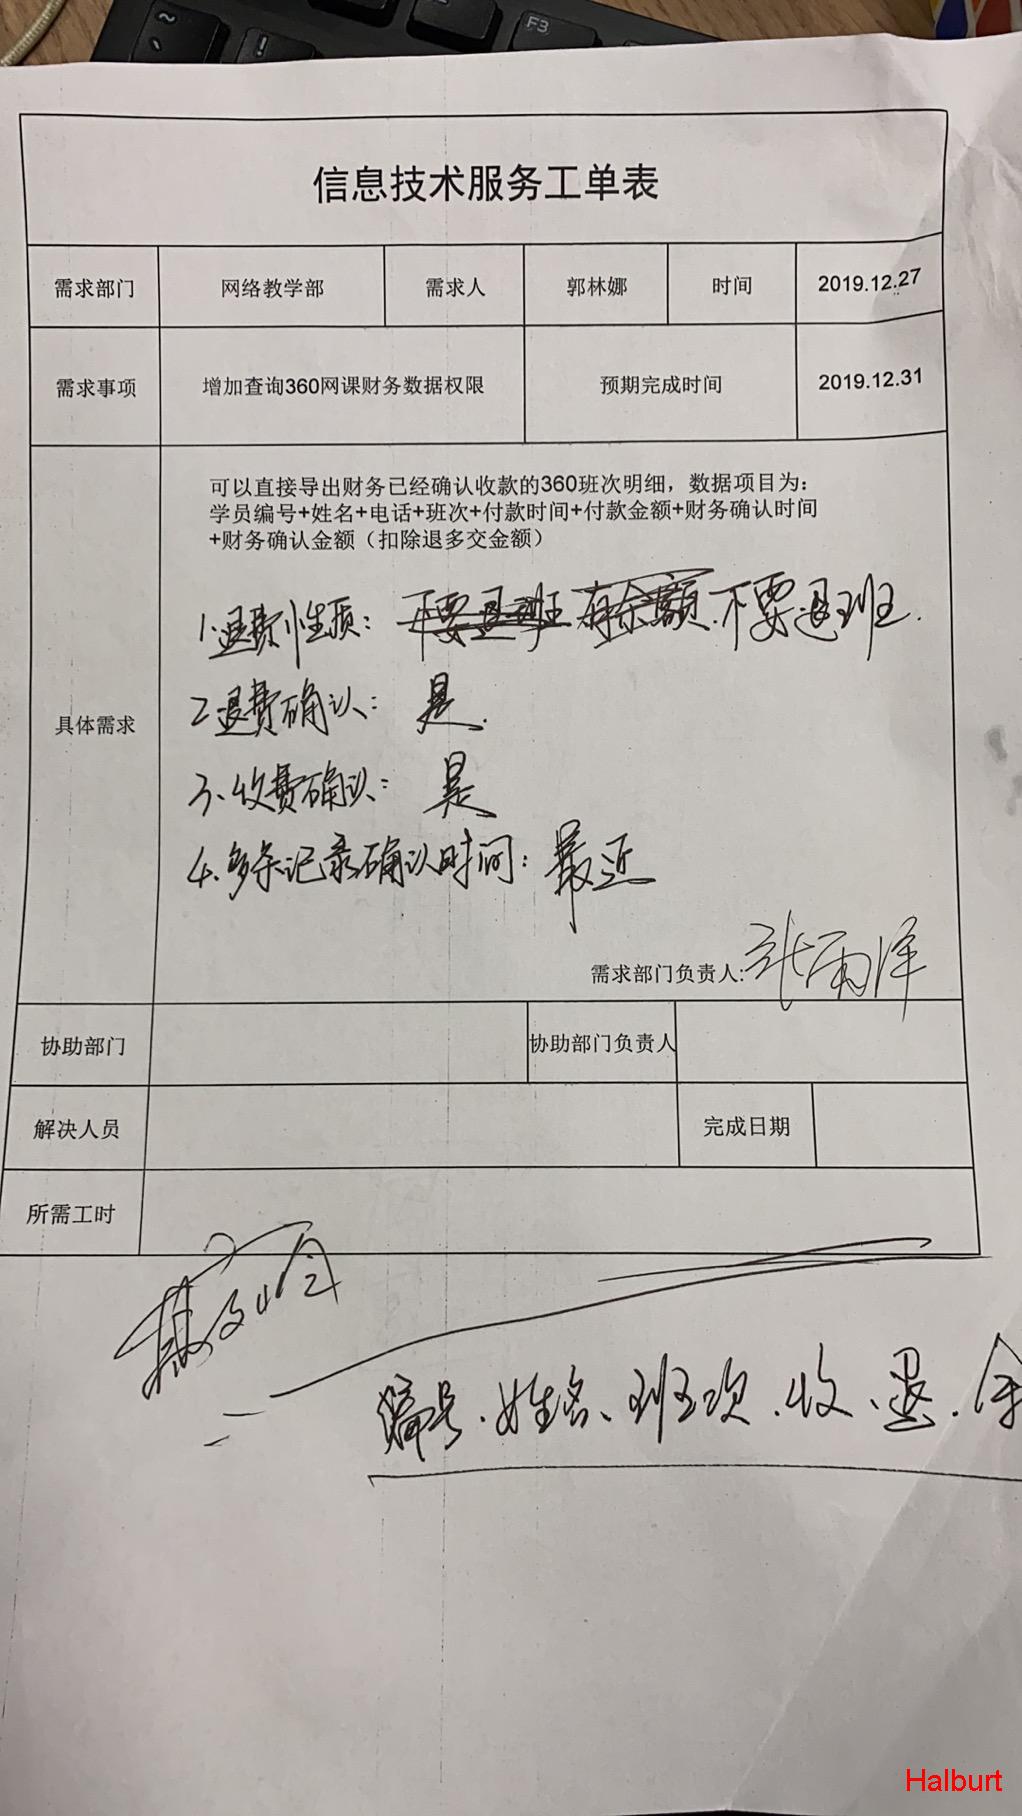 ~
!
F3
信息技术服务工单表
需求部门 网络教学部 需求人 郭林娜 时间 2019.12.27
需求事项 增加查询360网课财务数据权限 预期完成时间 2019.12.31
可以直接导出财务已经确认收款的360班次明细，数据项目为：
学员编号+姓名+电话+班次+付款时间+付款金额+财务确认时间
+财务确认金额（扣除退多交金额）
1.退费性质：不要退班 有余额.不要退班.
2.退费确认：是.
具体需求
3、收费确认：是
4.多条记录确认时间：最近
需求部门负责人:张雨洋
协助部门 协助部门负责人
解决人员 完成日期
所需工时
编号、姓名、班次、收、退、余
Halburt